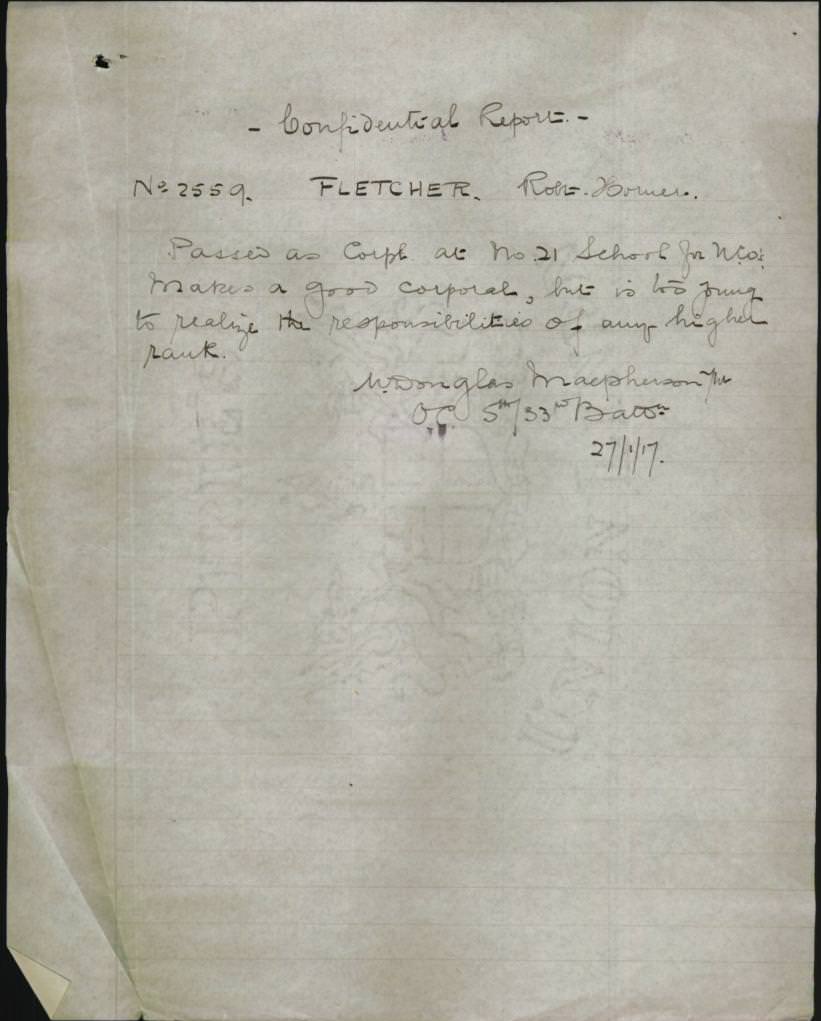 - Confidential Report. -
No 2559. FLETCHER. Robt. Homer.
Passed as Corpl at No. 21 School for NCOs
Makes a good corporal, but is too young
to realize the responsibilities of any higher
rank.
W. Douglas Macpherson
O.C. 5th/33rd Battn
27/1/17.